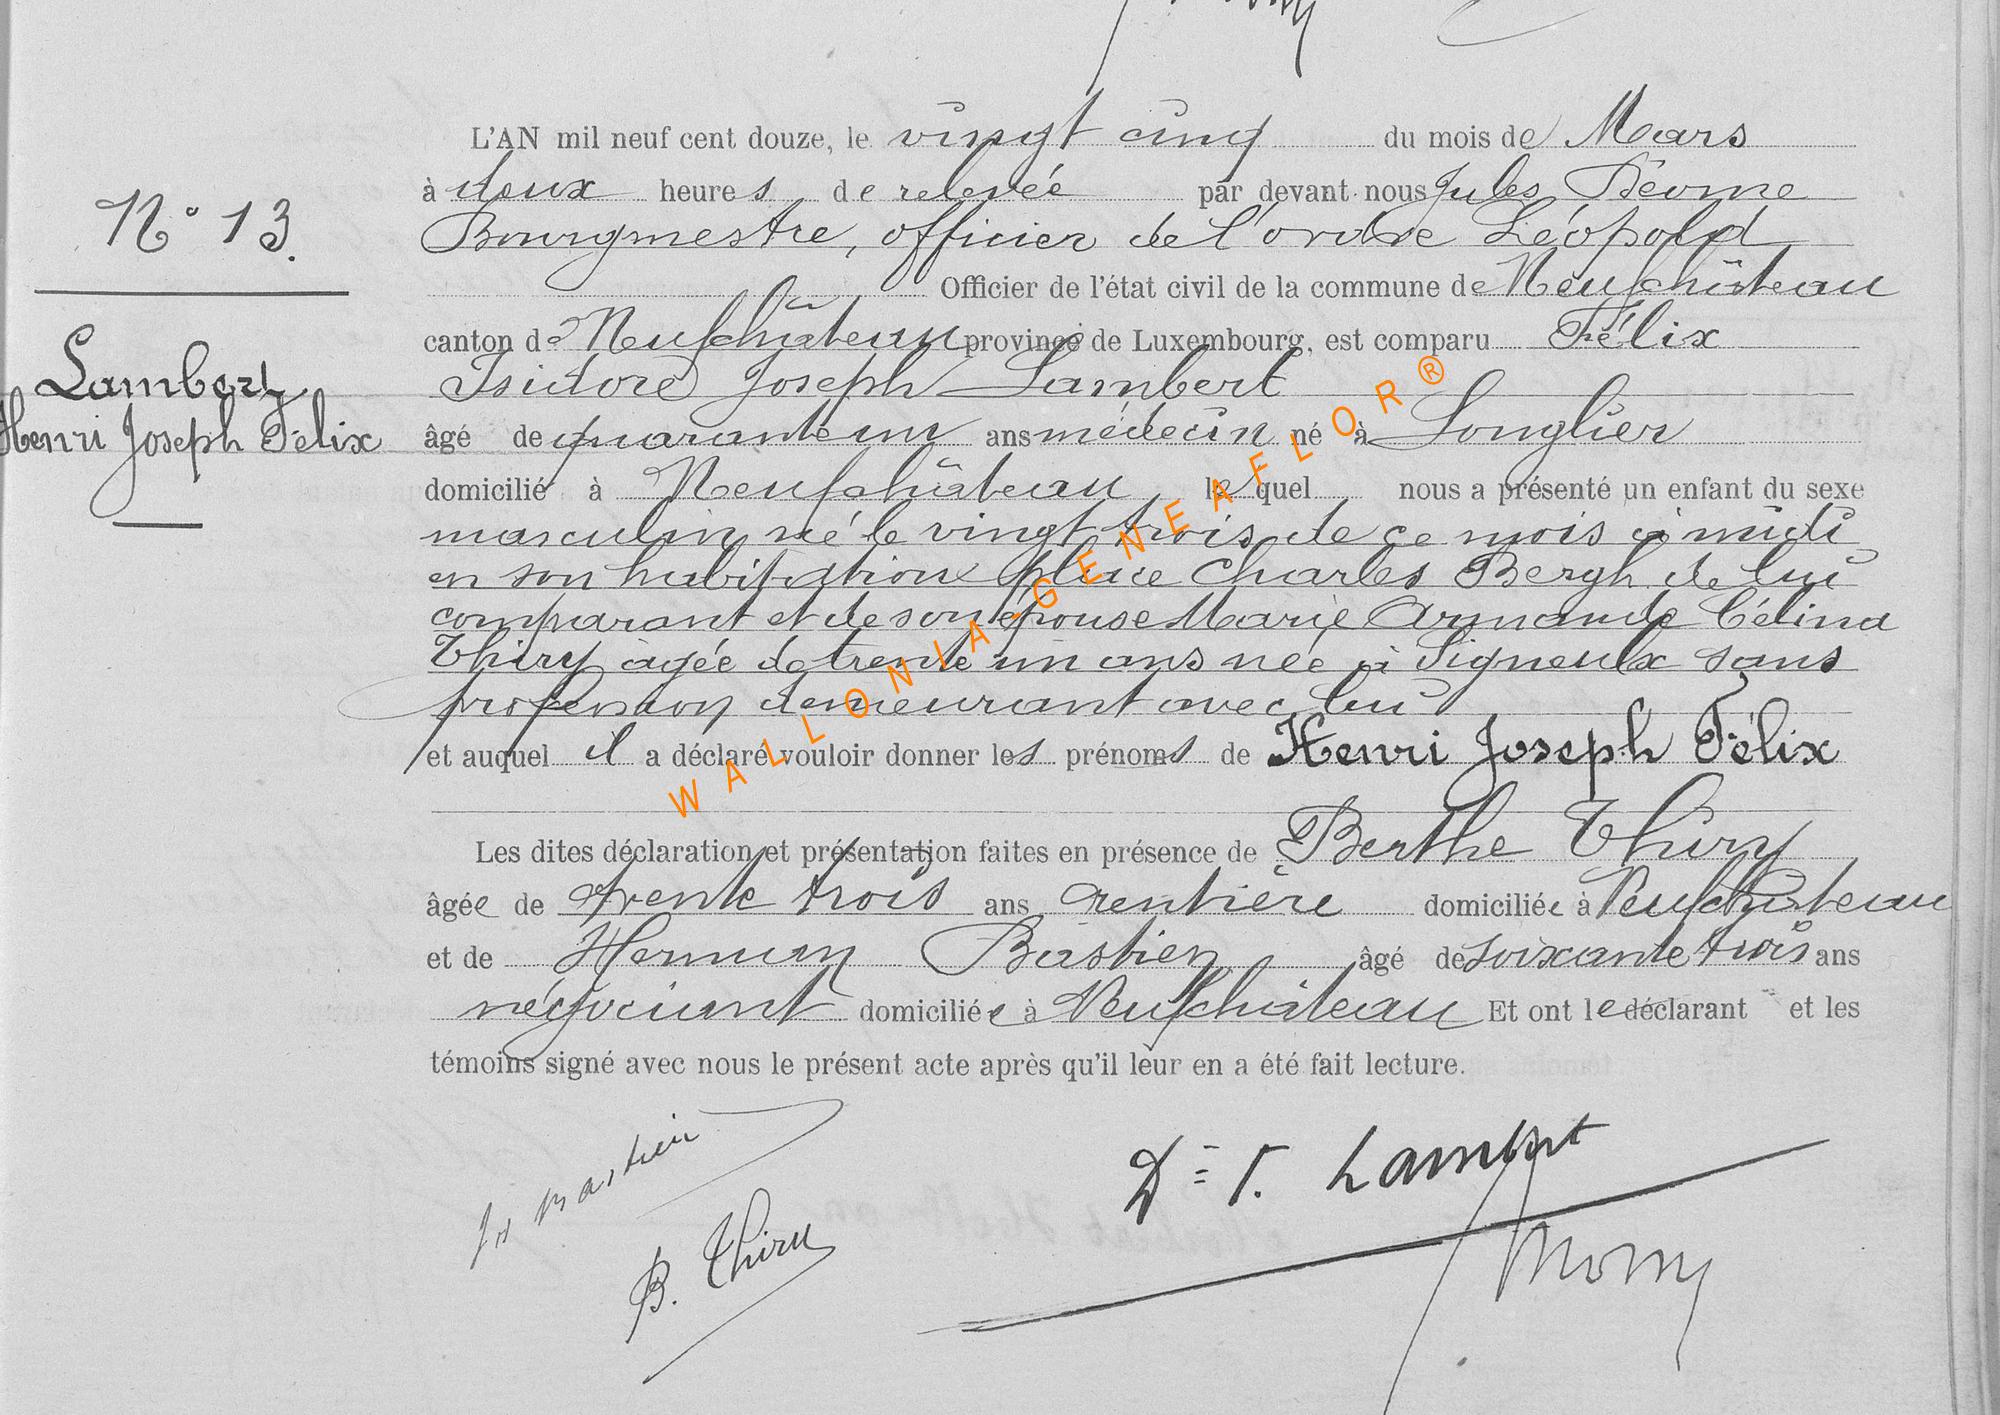 L'AN mil neuf cent douze, le vingt cinq du mois de Mars
à deux heures de relevée par devant nous Jules
Bourgmestre, officier de l'ordre Léopold
Officier de l'état civil de la commune de Neufchâteau
N° 13.
canton de Neufchâteau province de Luxembourg, est comparu Félix
Isidore Joseph Lambert
Lambert
Henri Joseph Félix
âgé de quarante un ans médecin né à Longlier
domicilié à Neufchâteau lequel nous a présenté un enfant du sexe
masculin né le vingt trois de ce mois à midi
en son habitation place Charles Bergh de lui
comparant et de son épouse Marie Armande Célina
Thiry agée de trente un ans née à Signeulx sans
profession demeurant avec lui
et auquel il a déclaré vouloir donner les prénoms de Henri Joseph Félix
Les dites déclaration et présentation faites en présence de Berthe Thiry
âgée de trente trois ans rentière domiciliée à Neufchâteau
et de Herman Bastien âgé de soixante trois ans
négociant domiciliée à Neufchâteau Et ont le déclarant et les
témoins signé avec nous le présent acte après qu'il leur en a été fait lecture.
Bastien
B. Thiry
Dr F. Lambert
WALLONIA-GENEAFLOR®